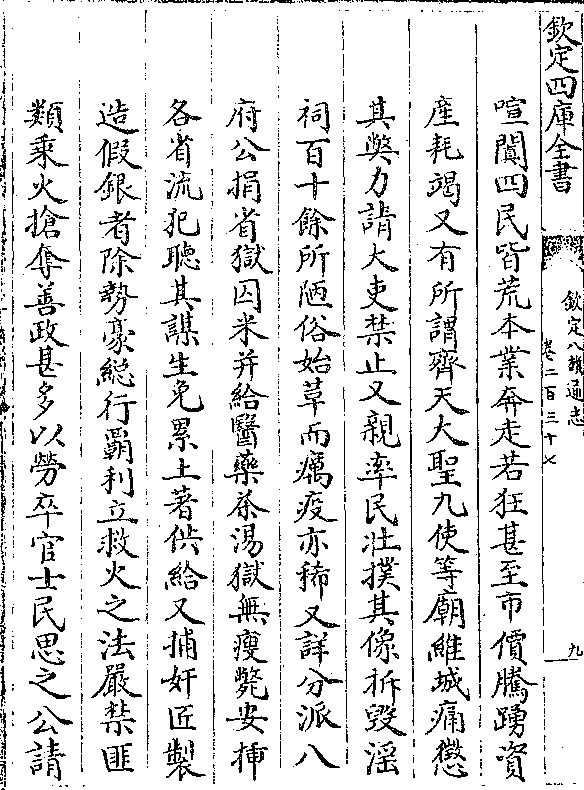 欽定四庫全書
欽定八旗通志
卷二百三十七
九
喧闐四民皆荒本業奔走若狂甚至市價騰踴資
産耗竭又有所謂齊天大聖九使等廟維城痛懲
其弊力請大吏禁止又親率民壯撲其像拆毀淫
祠百十餘所陋俗始革而癘疫亦稀又詳分派八
府公捐省獄囚米并給醫藥茶湯獄無瘦斃安揷
各省流犯聽其謀生免累土著供給又捕奸匠製
造假銀者除勢豪總行覇利立救火之法嚴禁匪
類乘火搶奪善政甚多以勞卒官士民思之公請